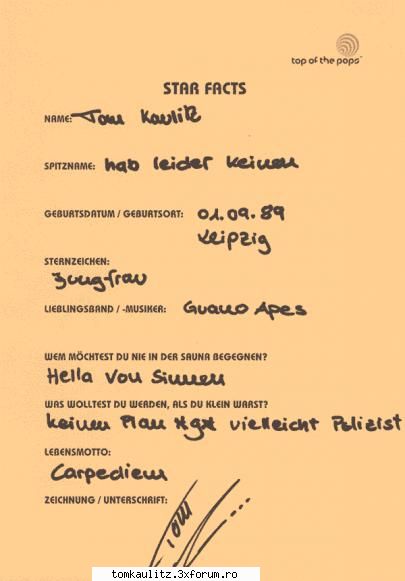 top of the pops
STAR FACTS
NAME: Tom Kaulitz
SPITZNAME: hab leider keinen
GEBURTSDATUM / GEBURTSORT: 01.09.89
Leipzig
STERNZEICHEN:
Jungfrau
LIEBLINGSBAND / -MUSIKER: Guano Apes
WEM MÖCHTEST DU NIE IN DER SAUNA BEGEGNEN?
Hella Von Sinnen
WAS WOLLTEST DU WERDEN, ALS DU KLEIN WARST?
keinen Plan vielleicht Polizist
LEBENSMOTTO:
Carpediem
ZEICHNUNG / UNTERSCHRIFT:
Tom
tomkaulitz.3xforum.ro